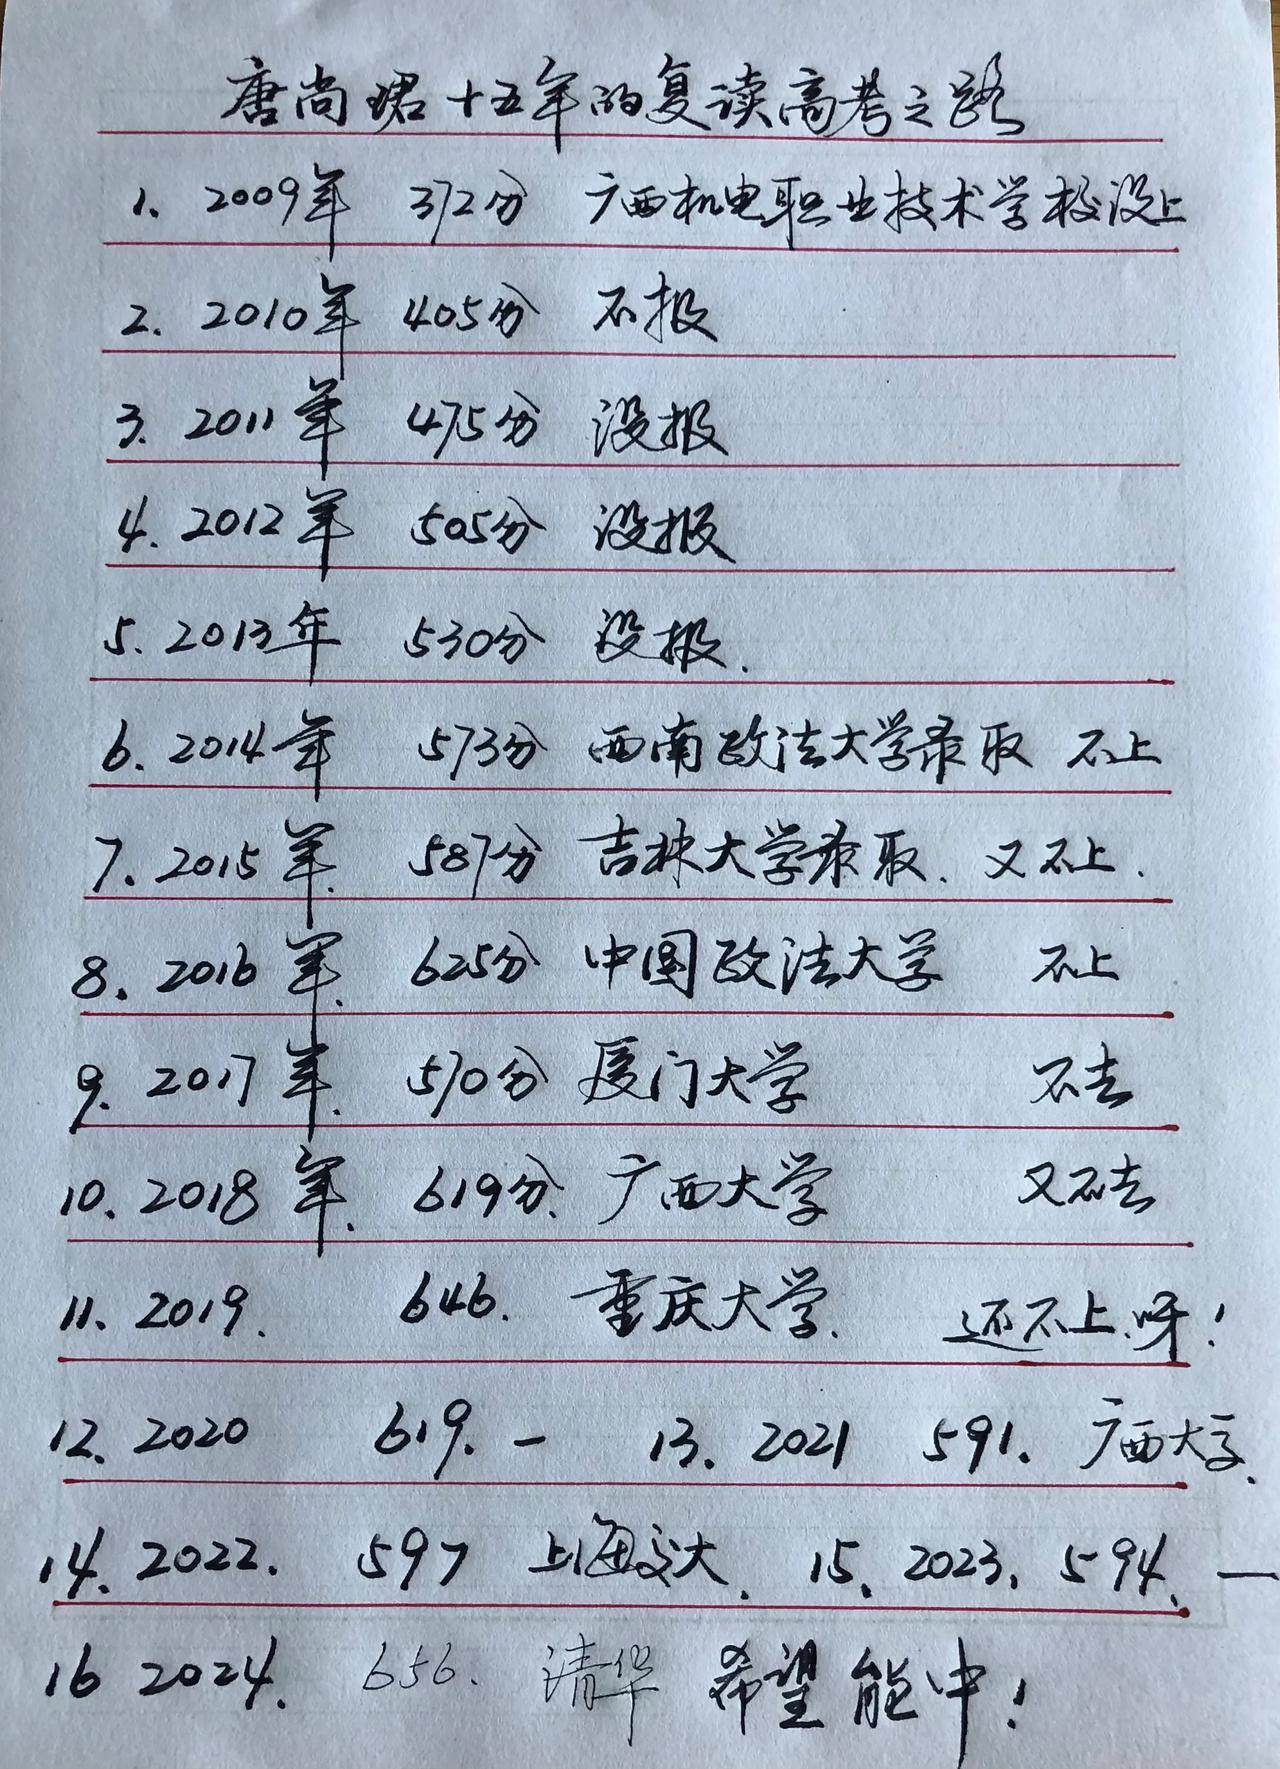 唐尚珺十五年的复读高考之路
1. 2009年 372分 广西机电职业技术学校没上
2. 2010年 405分 不报
3. 2011年 475分 没报
4. 2012年 505分 没报
5. 2013年 530分 没报.
6. 2014年 573分 西南政法大学录取 不上
7. 2015年. 587分 吉林大学录取. 又不上.
8. 2016年. 625分 中国政法大学 不上
9. 2017年. 570分 厦门大学 不去
10. 2018年. 619分. 广西大学 又不去
11. 2019. 646. 重庆大学. 还不上.呀!
12. 2020 619. - 13. 2021 591. 广西大学.
14. 2022. 597 上海交大. 15. 2023. 594. 一
16 2024. 656. 清华 希望能中!